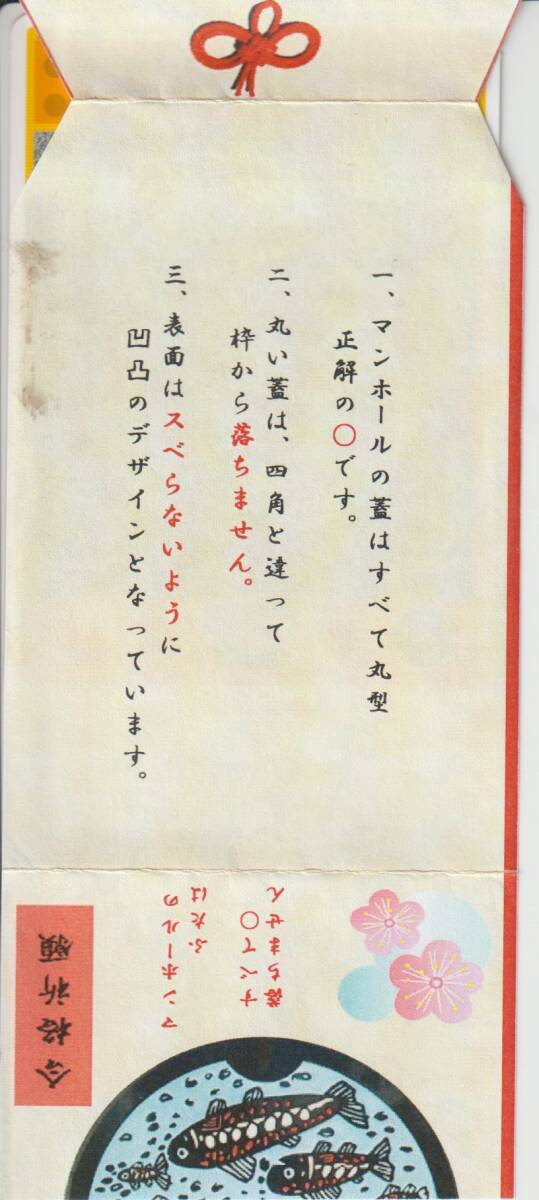 一、マンホールの蓋はすべて丸型
正解の〇です。
二、丸い蓋は、四角と違って
枠から落ちません。
三、表面はスベらないように
凹凸のデザインとなっています。
マンホールの
ふたは
すべて〇
落ちません
合格祈願